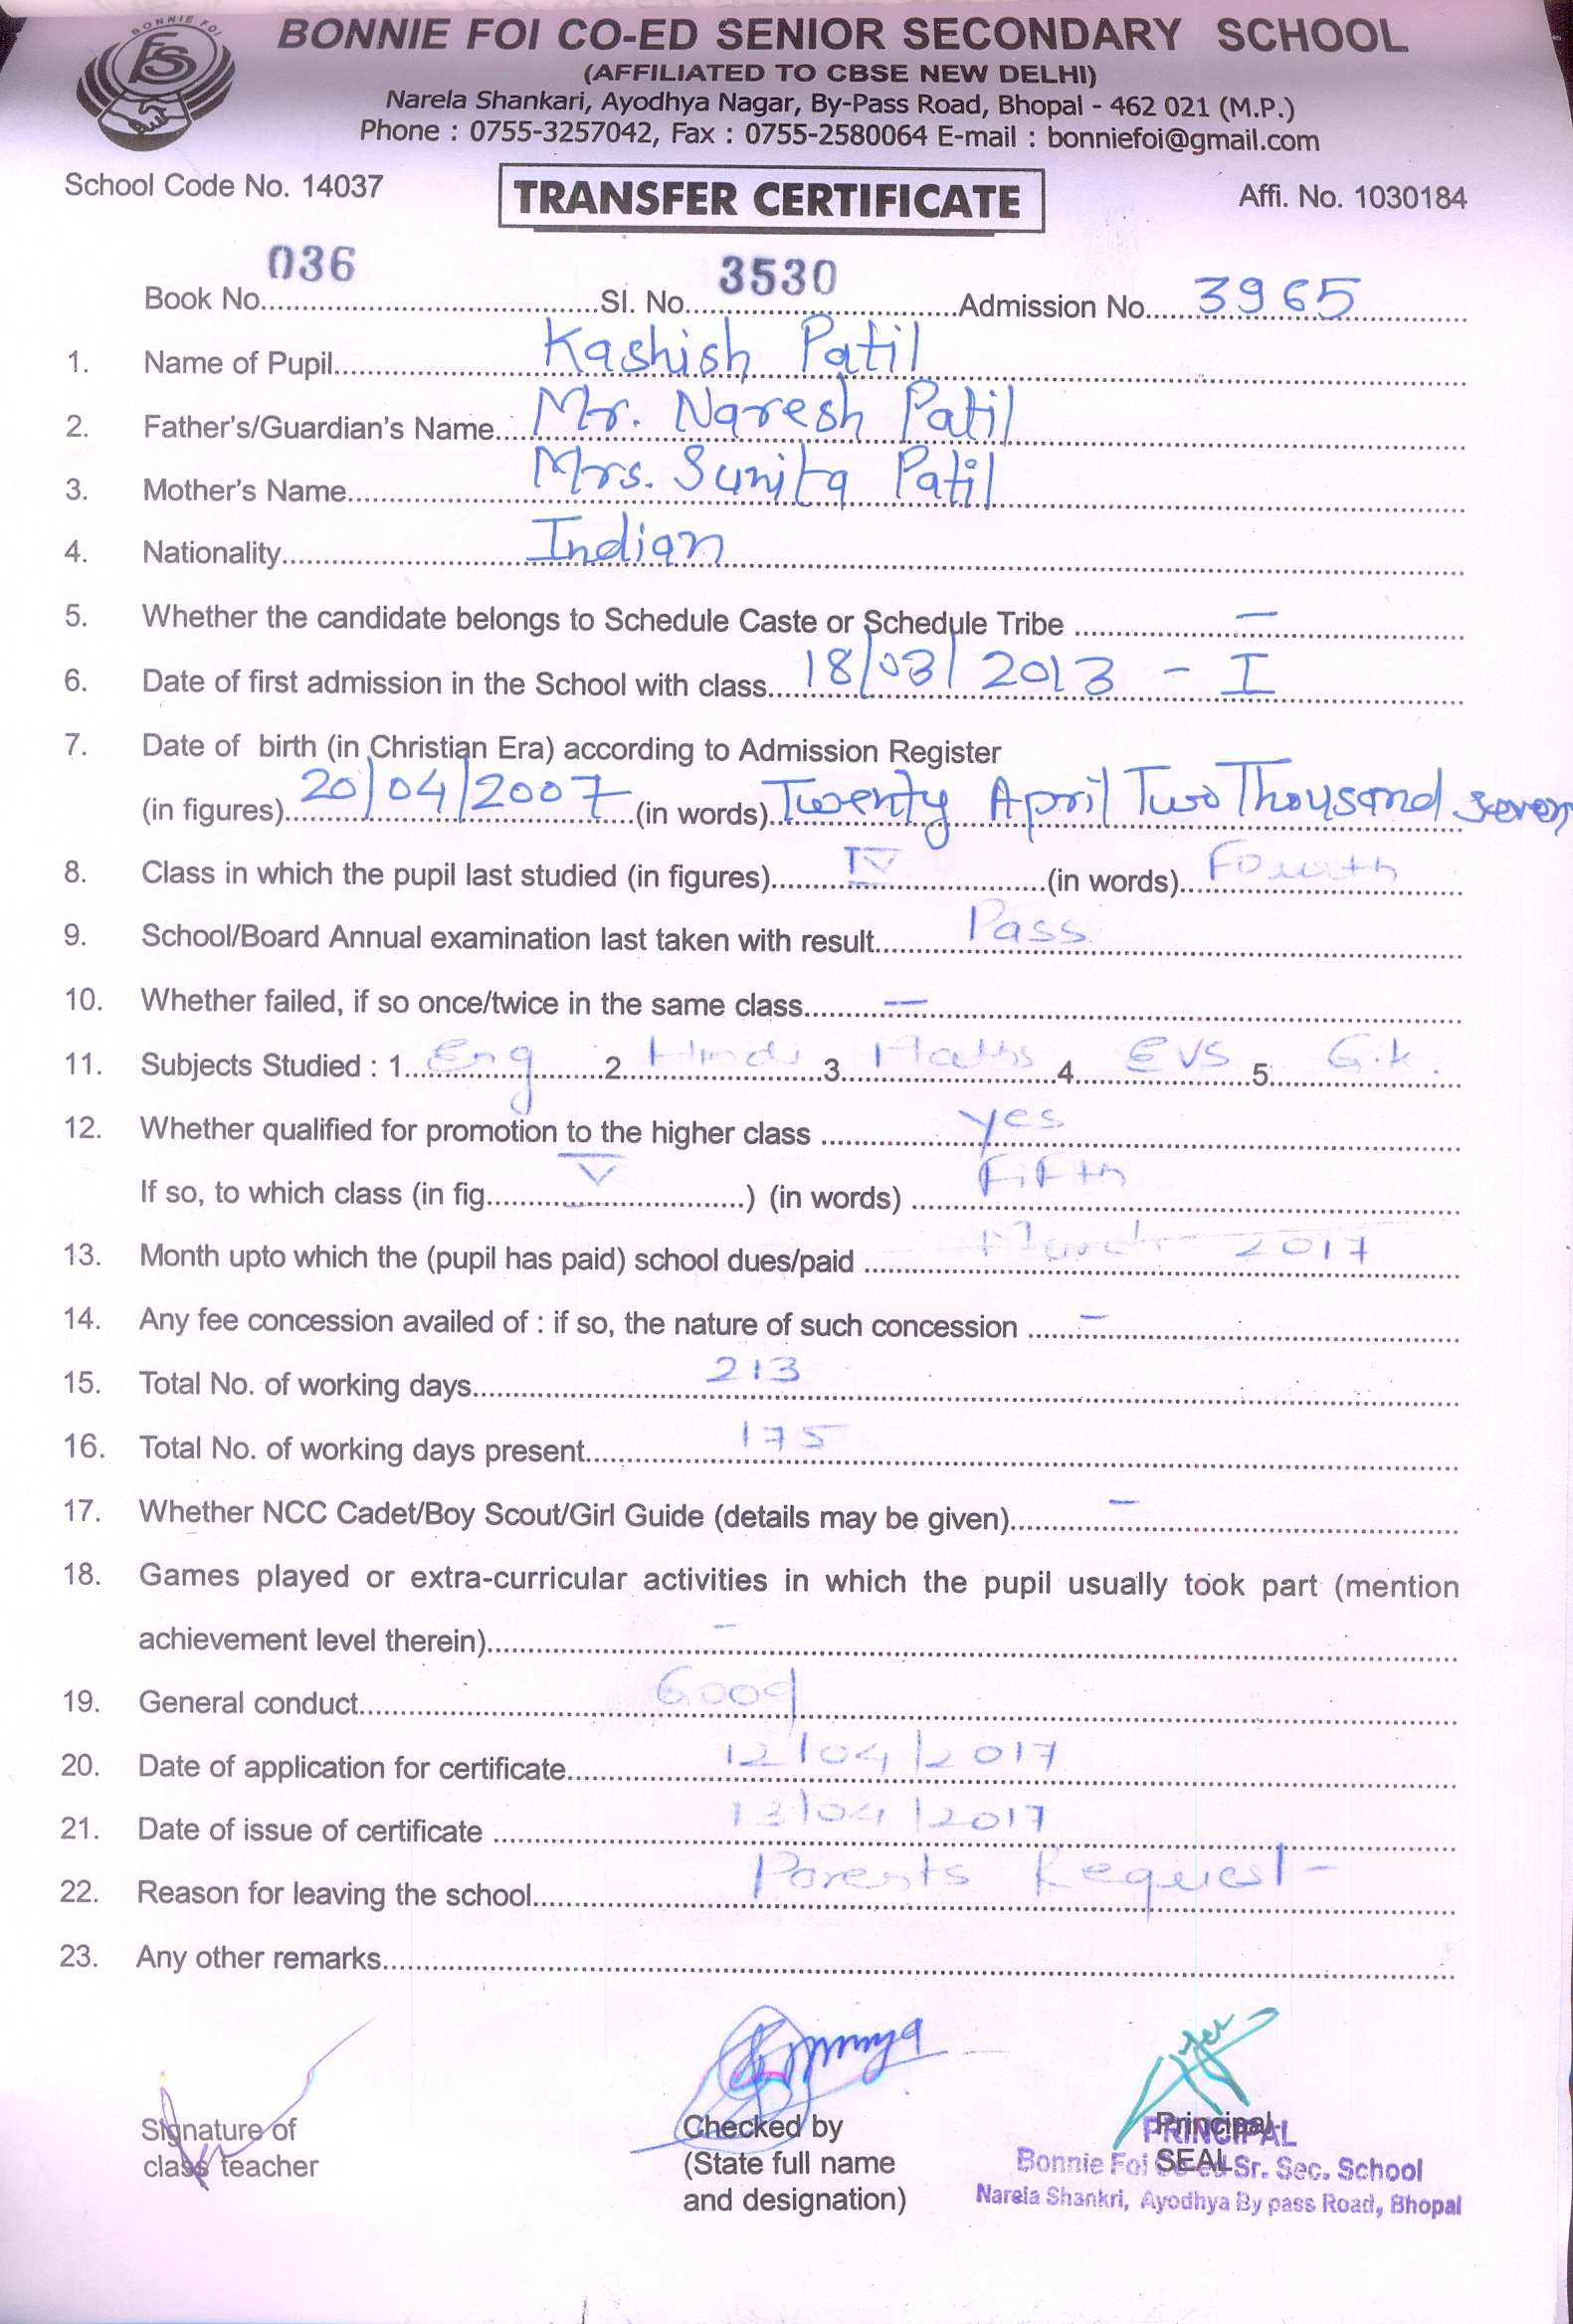 BONNIE FOI
BONNIE FOI CO-ED SENIOR SECONDARY SCHOOL
(AFFILIATED TO CBSE NEW DELHI)
Narela Shankari, Ayodhya Nagar, By-Pass Road, Bhopal - 462 021 (M.P.)
Phone : 0755-3257042, Fax : 0755-2580064 E-mail : bonniefoi@gmail.com
School Code No. 14037 TRANSFER CERTIFICATE Affi. No. 1030184
Book No. 036 Sl. No. 3530 Admission No. 3965
1. Name of Pupil Kashish Patil
2. Father's/Guardian's Name Mr. Naresh Patil
3. Mother's Name Mrs. Sunita Patil
4. Nationality Indian
5. Whether the candidate belongs to Schedule Caste or Schedule Tribe —
6. Date of first admission in the School with class 18/03/2013 - I
7. Date of birth (in Christian Era) according to Admission Register
(in figures) 20/04/2007 (in words) Twenty April Two Thousand seven
8. Class in which the pupil last studied (in figures) IV (in words) Fourth
9. School/Board Annual examination last taken with result Pass
10. Whether failed, if so once/twice in the same class —
11. Subjects Studied : 1 Eng 2 Hindi 3 Maths 4 EVS 5 G.K.
12. Whether qualified for promotion to the higher class yes
If so, to which class (in fig. V ) (in words) Fifth
13. Month upto which the (pupil has paid) school dues/paid March 2017
14. Any fee concession availed of : if so, the nature of such concession —
15. Total No. of working days 213
16. Total No. of working days present 175
17. Whether NCC Cadet/Boy Scout/Girl Guide (details may be given) —
18. Games played or extra-curricular activities in which the pupil usually took part (mention
achievement level therein) —
19. General conduct Good
20. Date of application for certificate 12/04/2017
21. Date of issue of certificate 13/04/2017
22. Reason for leaving the school Parents Request -
23. Any other remarks
Signature of
class teacher
Checked by
(State full name
and designation)
Principal
SEAL
PRINCIPAL
Bonnie Foi Co-ed Sr. Sec. School
Narela Shankri, Ayodhya By pass Road, Bhopal